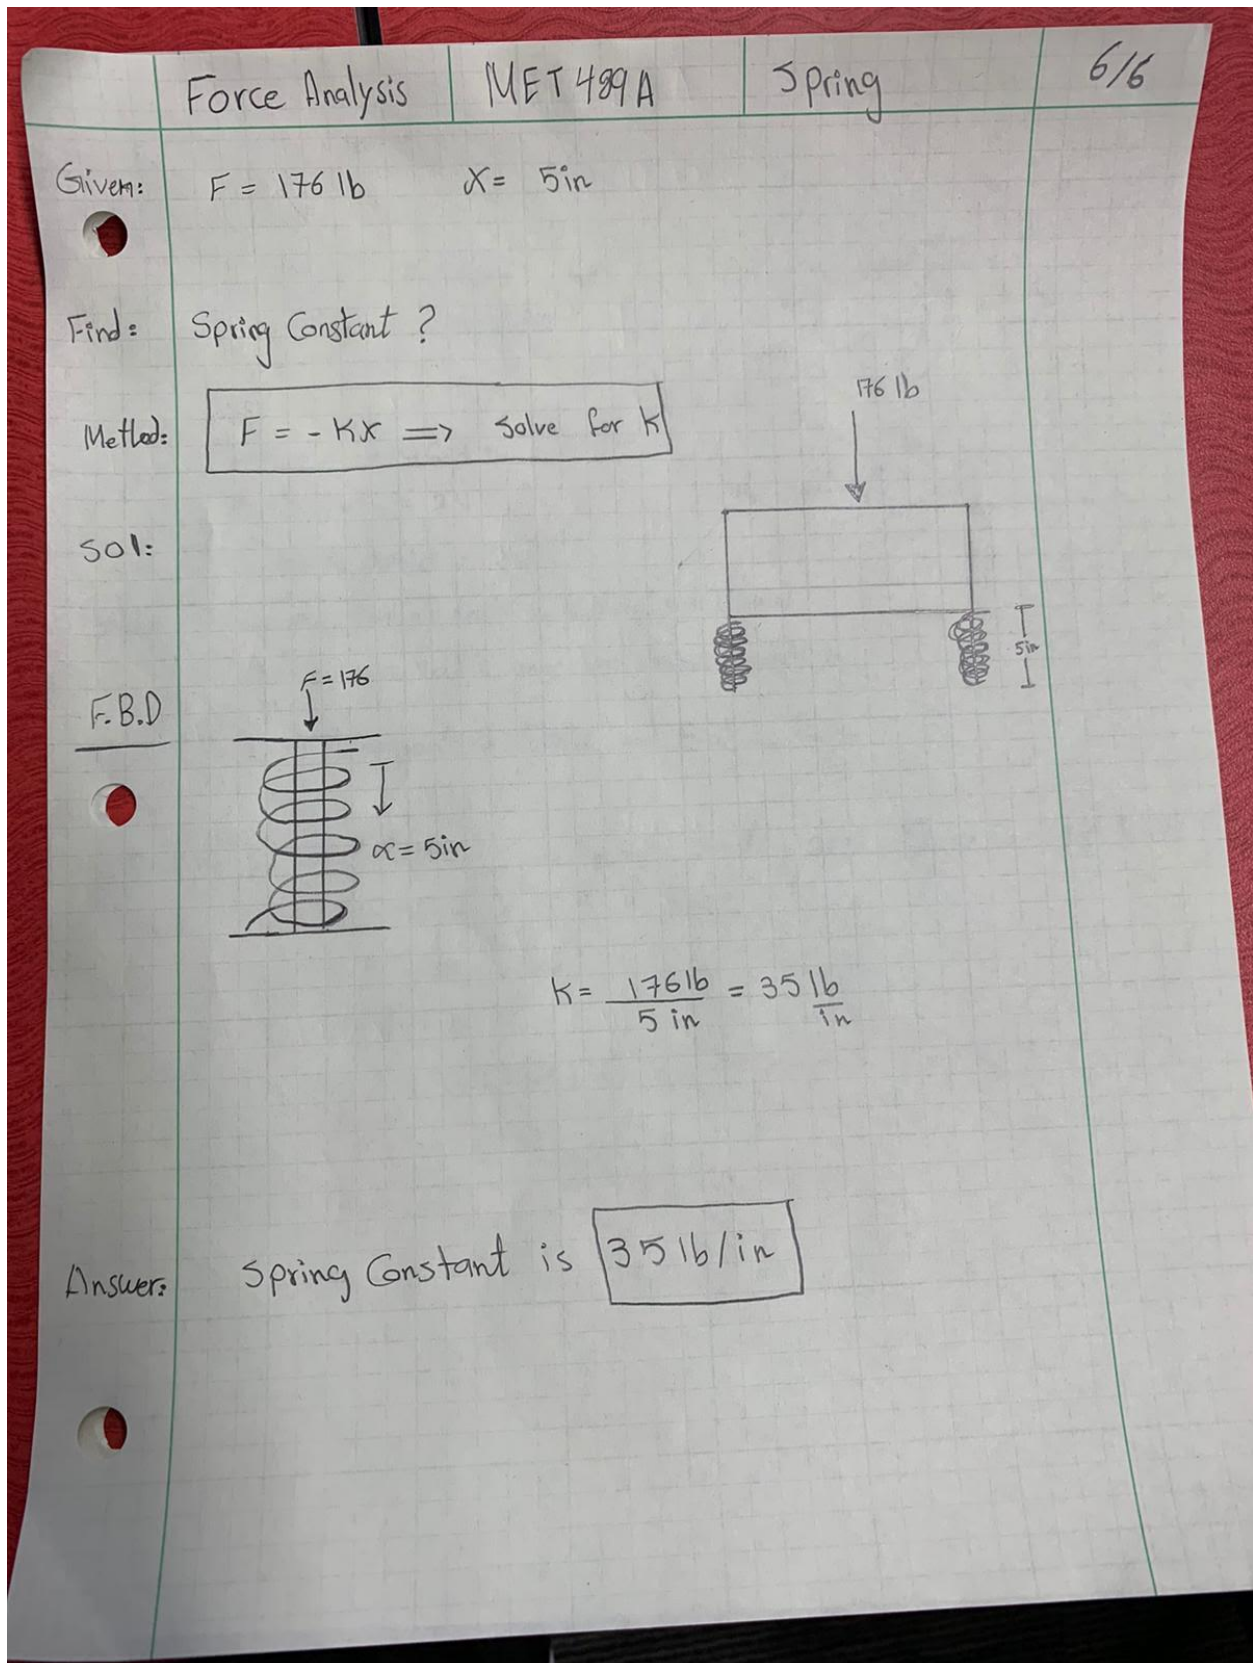 Force Analysis MET 489A Spring 6/6
Given: F = 176 lb x = 5in
Find: Spring Constant ?
Metlod: F = - Kx => Solve for K
176 lb
Sol:
5in
F.B.D
F = 176
x = 5in
K = 176 lb / 5 in = 35 lb / in
Answer: Spring Constant is 35 lb/in